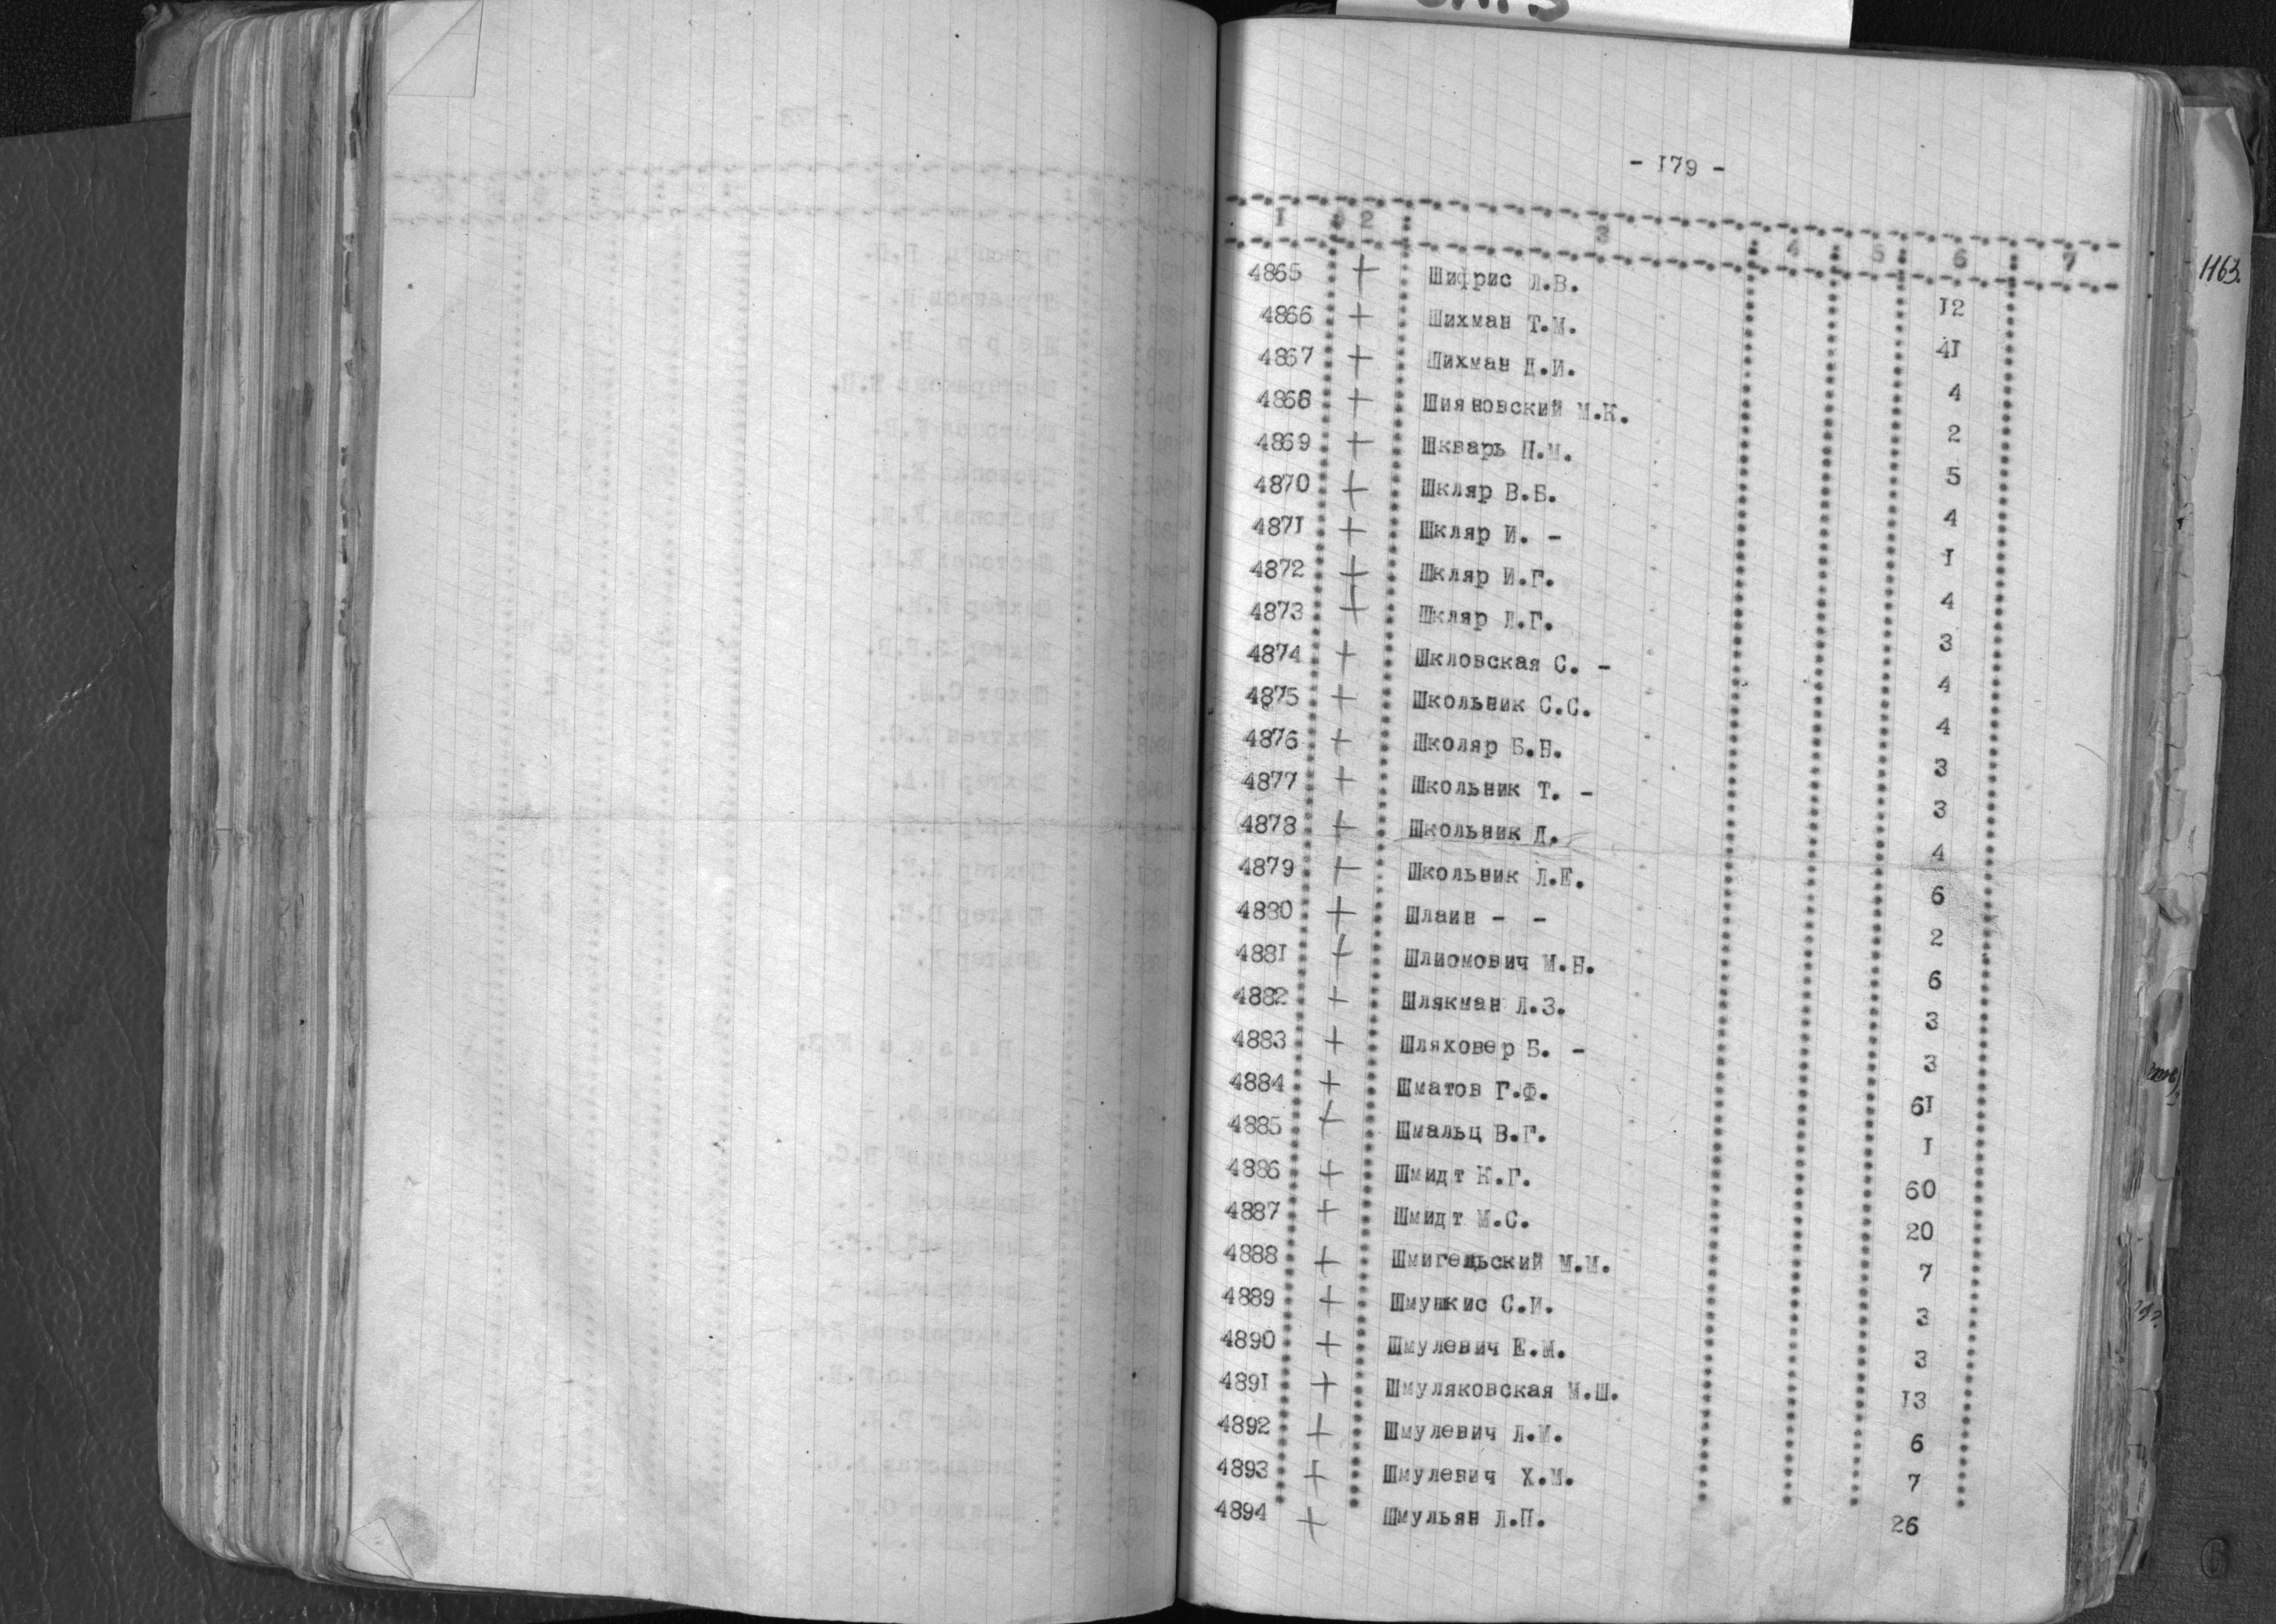 - I79 -
I 2 3 4 5 6 7
1163.
4865 + Шифрис Л.В. I2
4866 + Шихман Т.М. 4I
4867 + Шихман Д.И. 4
4868 + Шияновский М.К. 2
4869 + Шкварь П.М. 5
4870 + Шкляр В.Б. 4
487I + Шкляр И. - I
4872 + Шкляр И.Г. 4
4873 + Шкляр Л.Г. 3
4874 + Шкловская С. - 4
4875 + Школьник С.С. 4
4876 + Школяр Б.Н. 3
4877 + Школьник Т. - 3
4878 + Школьник Д. 4
4879 + Школьник Л.Е. 6
4880 + Шлаин - - 2
488I + Шлиомович М.Н. 6
4882 + Шлякман Л.З. 3
4883 + Шляховер Б. - 3
4884 + Шматов Г.Ф. 6I
4885 + Шмальц В.Г. I
4886 + Шмидт К.Г. 60
4887 + Шмидт М.С. 20
4888 + Шмигельский М.М. 7
4889 + Шмункис С.И. 3
4890 + Шмулевич Е.М. 3
489I + Шмуляковская М.Ш. I3
4892 + Шмулевич Л.М. 6
4893 + Шмулевич Х.М. 7
4894 + Шмульян Л.П. 26